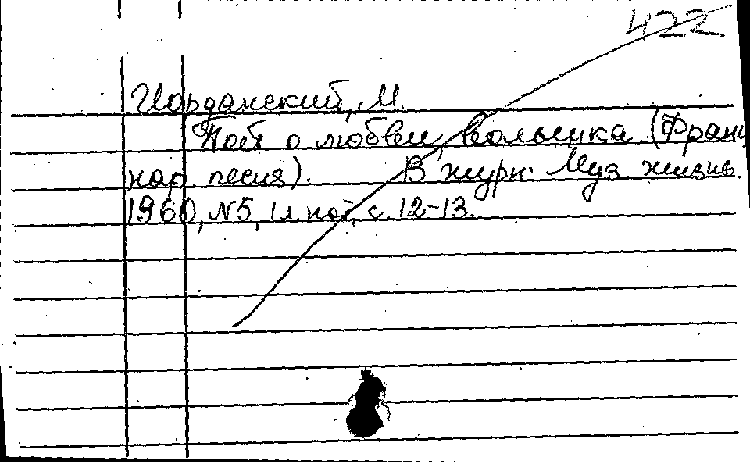 422
Иорданский, М.
Пой о любви, волынка (Франц.
нар. песня). В журн. Муз. жизнь.
1960, N5, 1 л. нот, с. 12-13.